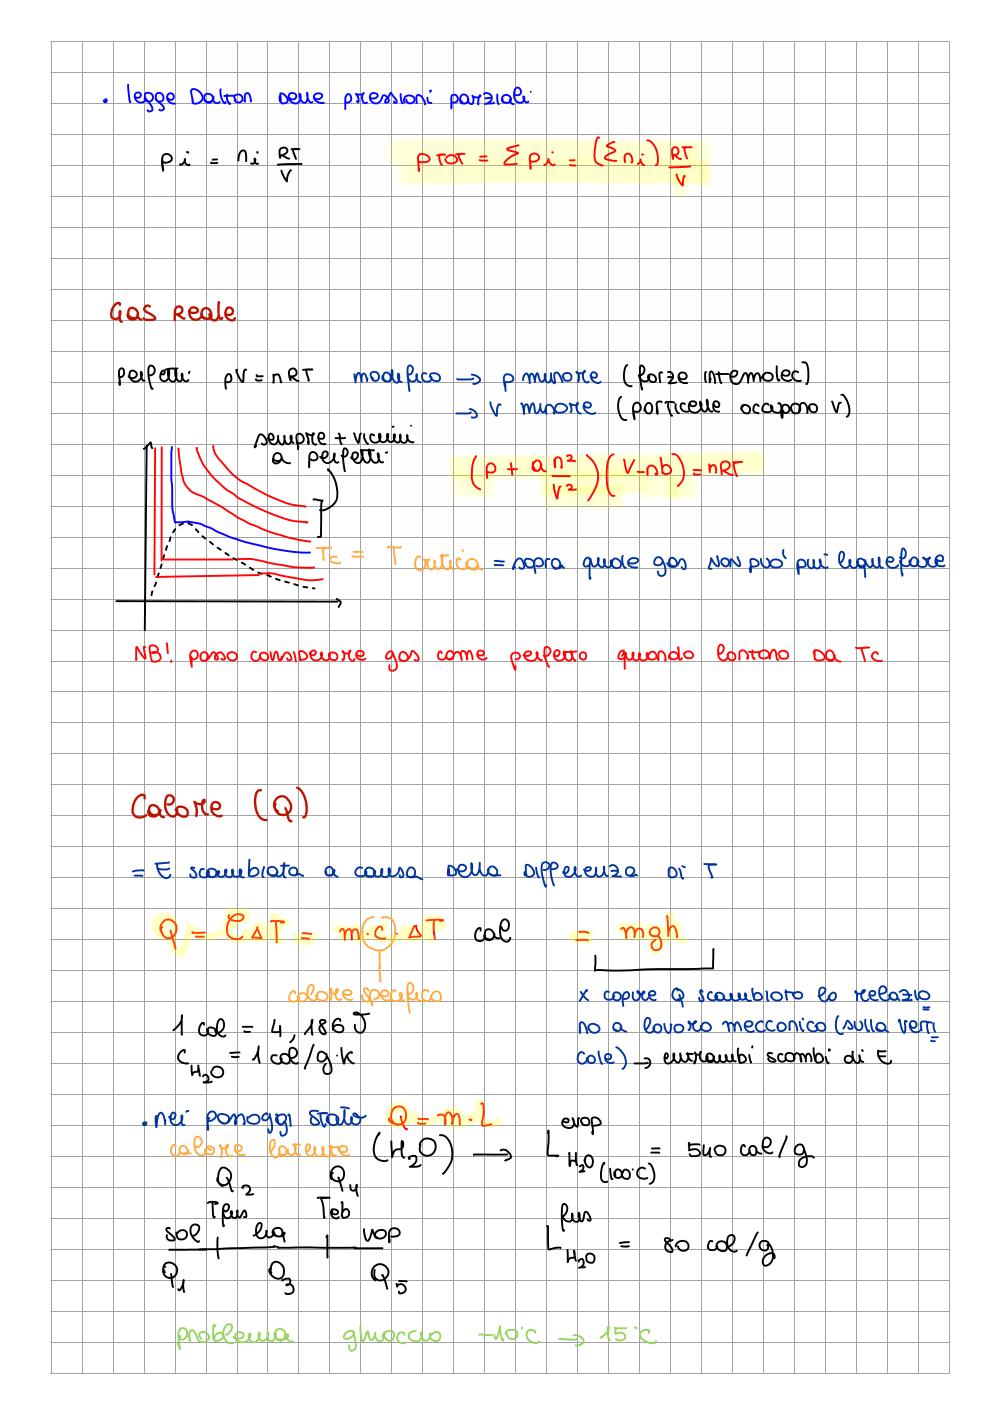 . legge Dalton delle pressioni parziali
pi = ni RT/V    pTOT = Σ pi = (Σ ni) RT/V
Gas Reale
perfetti pV = nRT modifico → p minore (forze intermolec)
→ V minore (particelle occupano V)
sempre + vicini
a perfetti
(p + a n²/V²)(V-nb) = nRT
Tc = T critica = sopra quale gas NON può più liquefare
NB! posso considerare gas come perfetto quando lontano da Tc
Calore (Q)
= E scambiata a causa della differenza di T
Q = C ΔT = m·c·ΔT cal = mgh
calore specifico
x capire Q scambiato lo relazio
no a lavoro meccanico (sulla verti
cale) → entrambi scambi di E
1 cal = 4,186 J
cH₂O = 1 cal/g·k
. nei passaggi stato Q = m·L
calore latente (H₂O) → L evap H₂O (100°C) = 540 cal/g
Q₂ Q₄
Tfus Teb
sol liq vap
Q₁ Q₃ Q₅
L fus H₂O = 80 cal/g
problema ghiaccio -10°C → 15°C